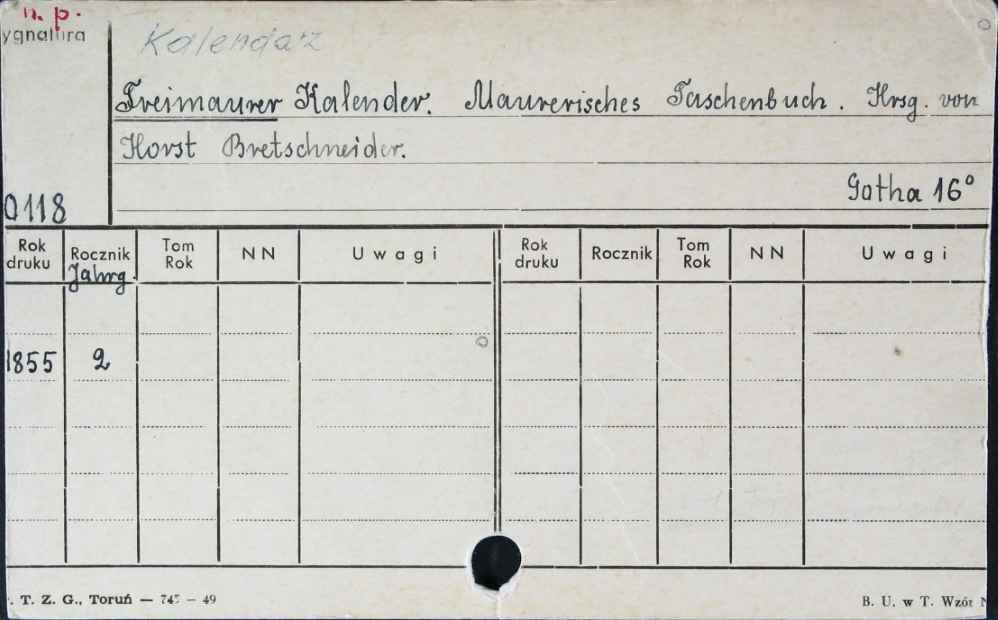 n. p.
ygnatura
Kalendarz
Freimaurer Kalender. Maurerisches Taschenbuch. Hrsg. von
Horst Bretschneider.
Gotha 16°
0118
Rok druku Rocznik Tom Rok NN Uwagi Rok druku Rocznik Tom Rok NN Uwagi
Jahrg.
1855 2
. T. Z. G., Toruń — 745 — 49
B. U. w T. Wzór N